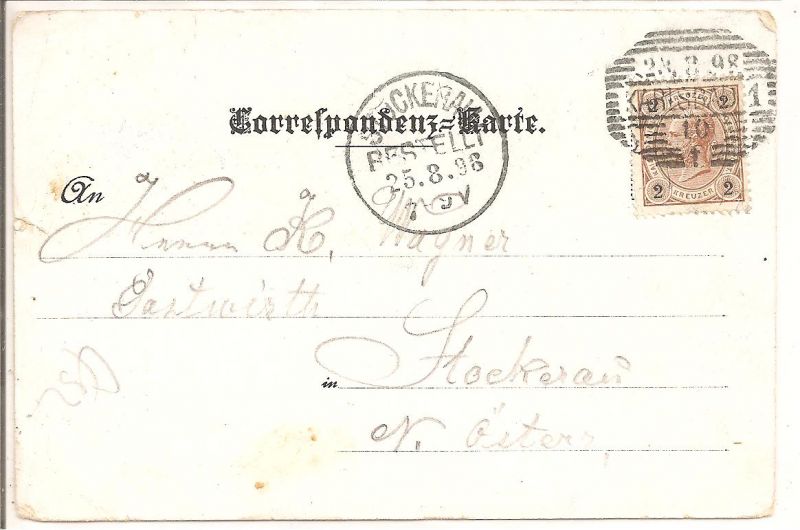 Correspondenz-Karte.
STOCKERAU
BESTELLT
25.8.98
7 V
23.8.98
1
10
2 2
2 KREUZER 2
An Herrn K. Wagner
Gastwirth
in Stockerau
N. Österr